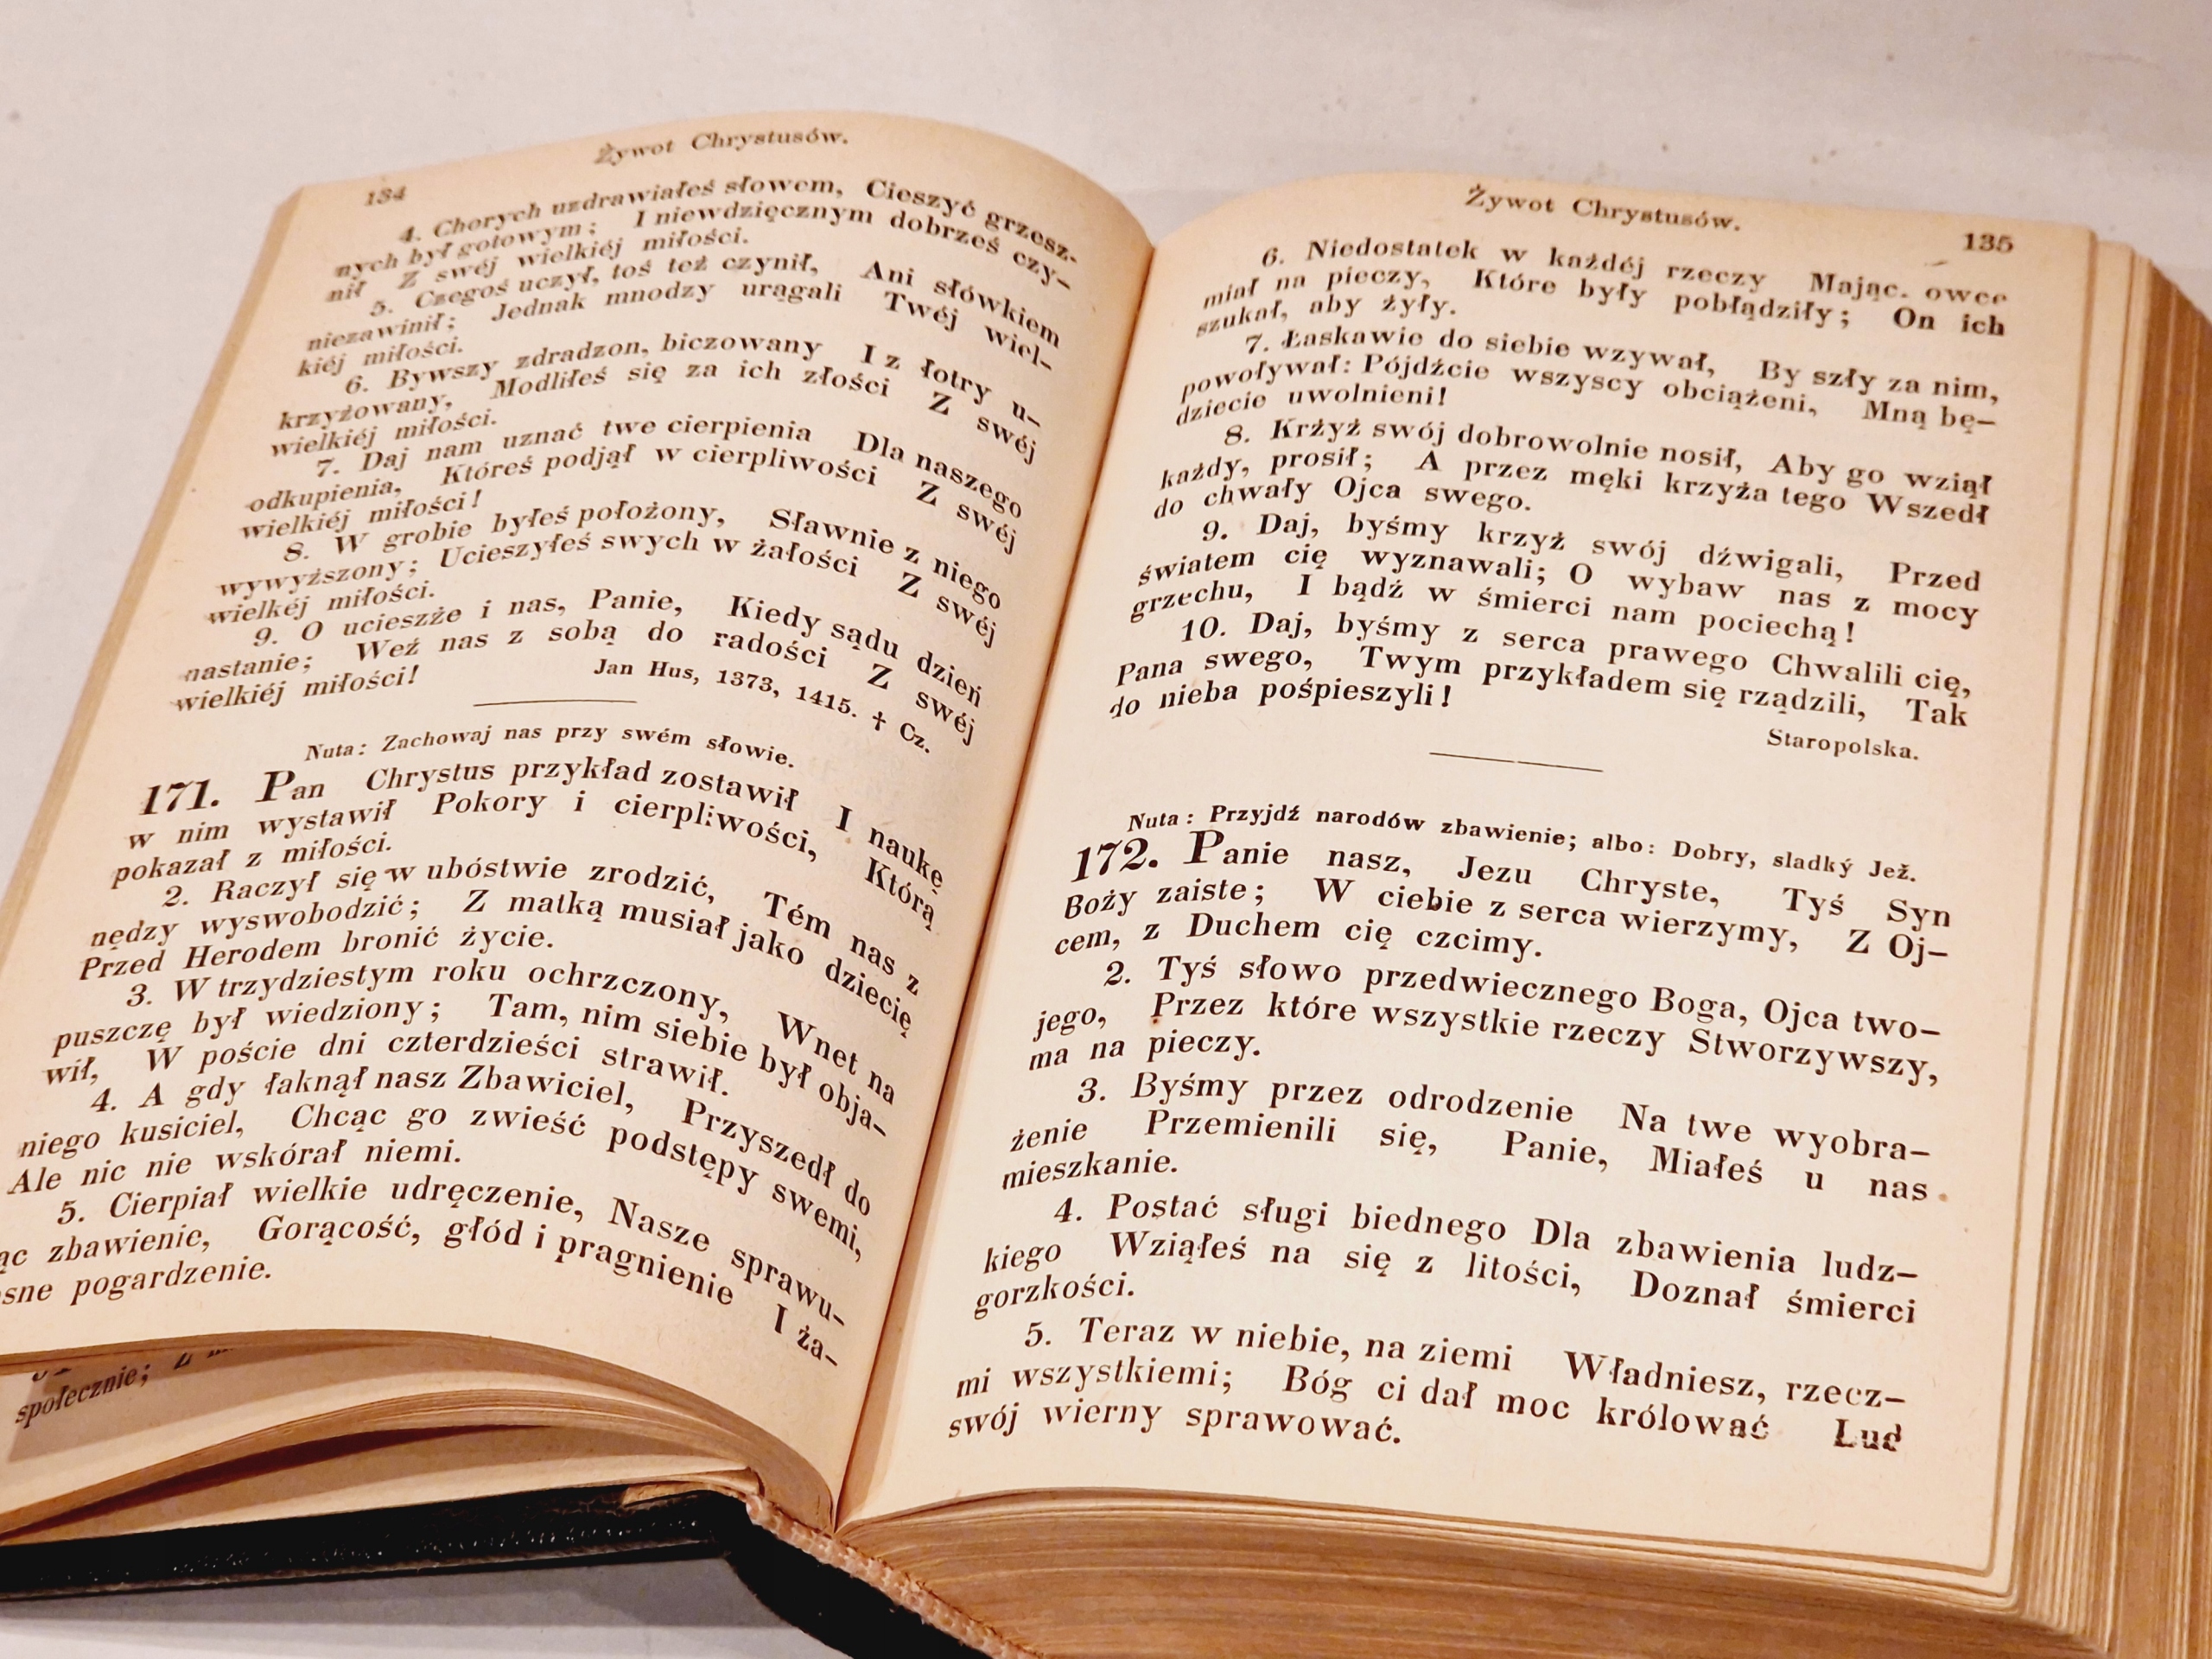 134
Żywot Chrystusów.
4. Chorych uzdrawiałeś słowem, Cieszyć grzesz-
nych był gotowym; I niewdzięcznym dobrześ czy-
nił Z swéj wielkiéj miłości.
5. Czegoś uczył, toś też czynił, Ani słówkiem
niezawinił; Jednak mnodzy urągali Twéj wiel-
kiéj miłości.
6. Bywszy zdradzon, biczowany I z łotry u-
krzyżowany, Modliłeś się za ich złości Z swéj
wielkiéj miłości.
7. Daj nam uznać twe cierpienia Dla naszego
odkupienia, Któreś podjął w cierpliwości Z swéj
wielkiéj miłości!
8. W grobie byłeś położony, Sławnie z niego
wywyższony; Ucieszyłeś swych w żałości Z swéj
wielkéj miłości.
9. O ucieszże i nas, Panie, Kiedy sądu dzień
nastanie; Weź nas z sobą do radości Z swéj
wielkiéj miłości!
Jan Hus, 1373, 1415. † Cz.
Nuta: Zachowaj nas przy swém słowie.
171. Pan Chrystus przykład zostawił I naukę
w nim wystawił Pokory i cierpliwości, Którą
pokazał z miłości.
2. Raczył się w ubóstwie zrodzić, Tém nas z
nędzy wyswobodzić; Z matką musiał jako dziecię
Przed Herodem bronić życie.
3. W trzydziestym roku ochrzczony, Wnet na
puszczę był wiedziony; Tam, nim siebie był obja-
wił, W poście dni czterdzieści strawił.
4. A gdy łaknął nasz Zbawiciel, Przyszedł do
niego kusiciel, Chcąc go zwieść podstępy swemi,
Ale nic nie wskórał niemi.
5. Cierpiał wielkie udręczenie, Nasze sprawu-
ąc zbawienie, Gorącość, głód i pragnienie I ża-
sne pogardzenie.
społecznie;
Żywot Chrystusów.
135
6. Niedostatek w każdéj rzeczy Mając. owce
miał na pieczy, Które były pobłądziły; On ich
szukał, aby żyły.
7. Łaskawie do siebie wzywał, By szły za nim,
powoływał: Pójdźcie wszyscy obciążeni, Mną bę-
dziecie uwolnieni!
8. Krżyż swój dobrowolnie nosił, Aby go wziął
każdy, prosił; A przez męki krzyża tego Wszedł
do chwały Ojca swego.
9. Daj, byśmy krzyż swój dźwigali, Przed
światem cię wyznawali; O wybaw nas z mocy
grzechu, I bądź w śmierci nam pociechą!
10. Daj, byśmy z serca prawego Chwalili cię,
Pana swego, Twym przykładem się rządzili, Tak
do nieba pośpieszyli!
Staropolska.
Nuta: Przyjdź narodów zbawienie; albo: Dobry, sladký Jež.
172. Panie nasz, Jezu Chryste, Tyś Syn
Boży zaiste; W ciebie z serca wierzymy, Z Oj-
cem, z Duchem cię czcimy.
2. Tyś słowo przedwiecznego Boga, Ojca two-
jego, Przez które wszystkie rzeczy Stworzywszy,
ma na pieczy.
3. Byśmy przez odrodzenie Na twe wyobra-
żenie Przemienili się, Panie, Miałeś u nas
mieszkanie.
4. Postać sługi biednego Dla zbawienia ludz-
kiego Wziąłeś na się z litości, Doznał śmierci
gorzkości.
5. Teraz w niebie, na ziemi Władniesz, rzecz-
mi wszystkiemi; Bóg ci dał moc królować Lud
swój wierny sprawować.